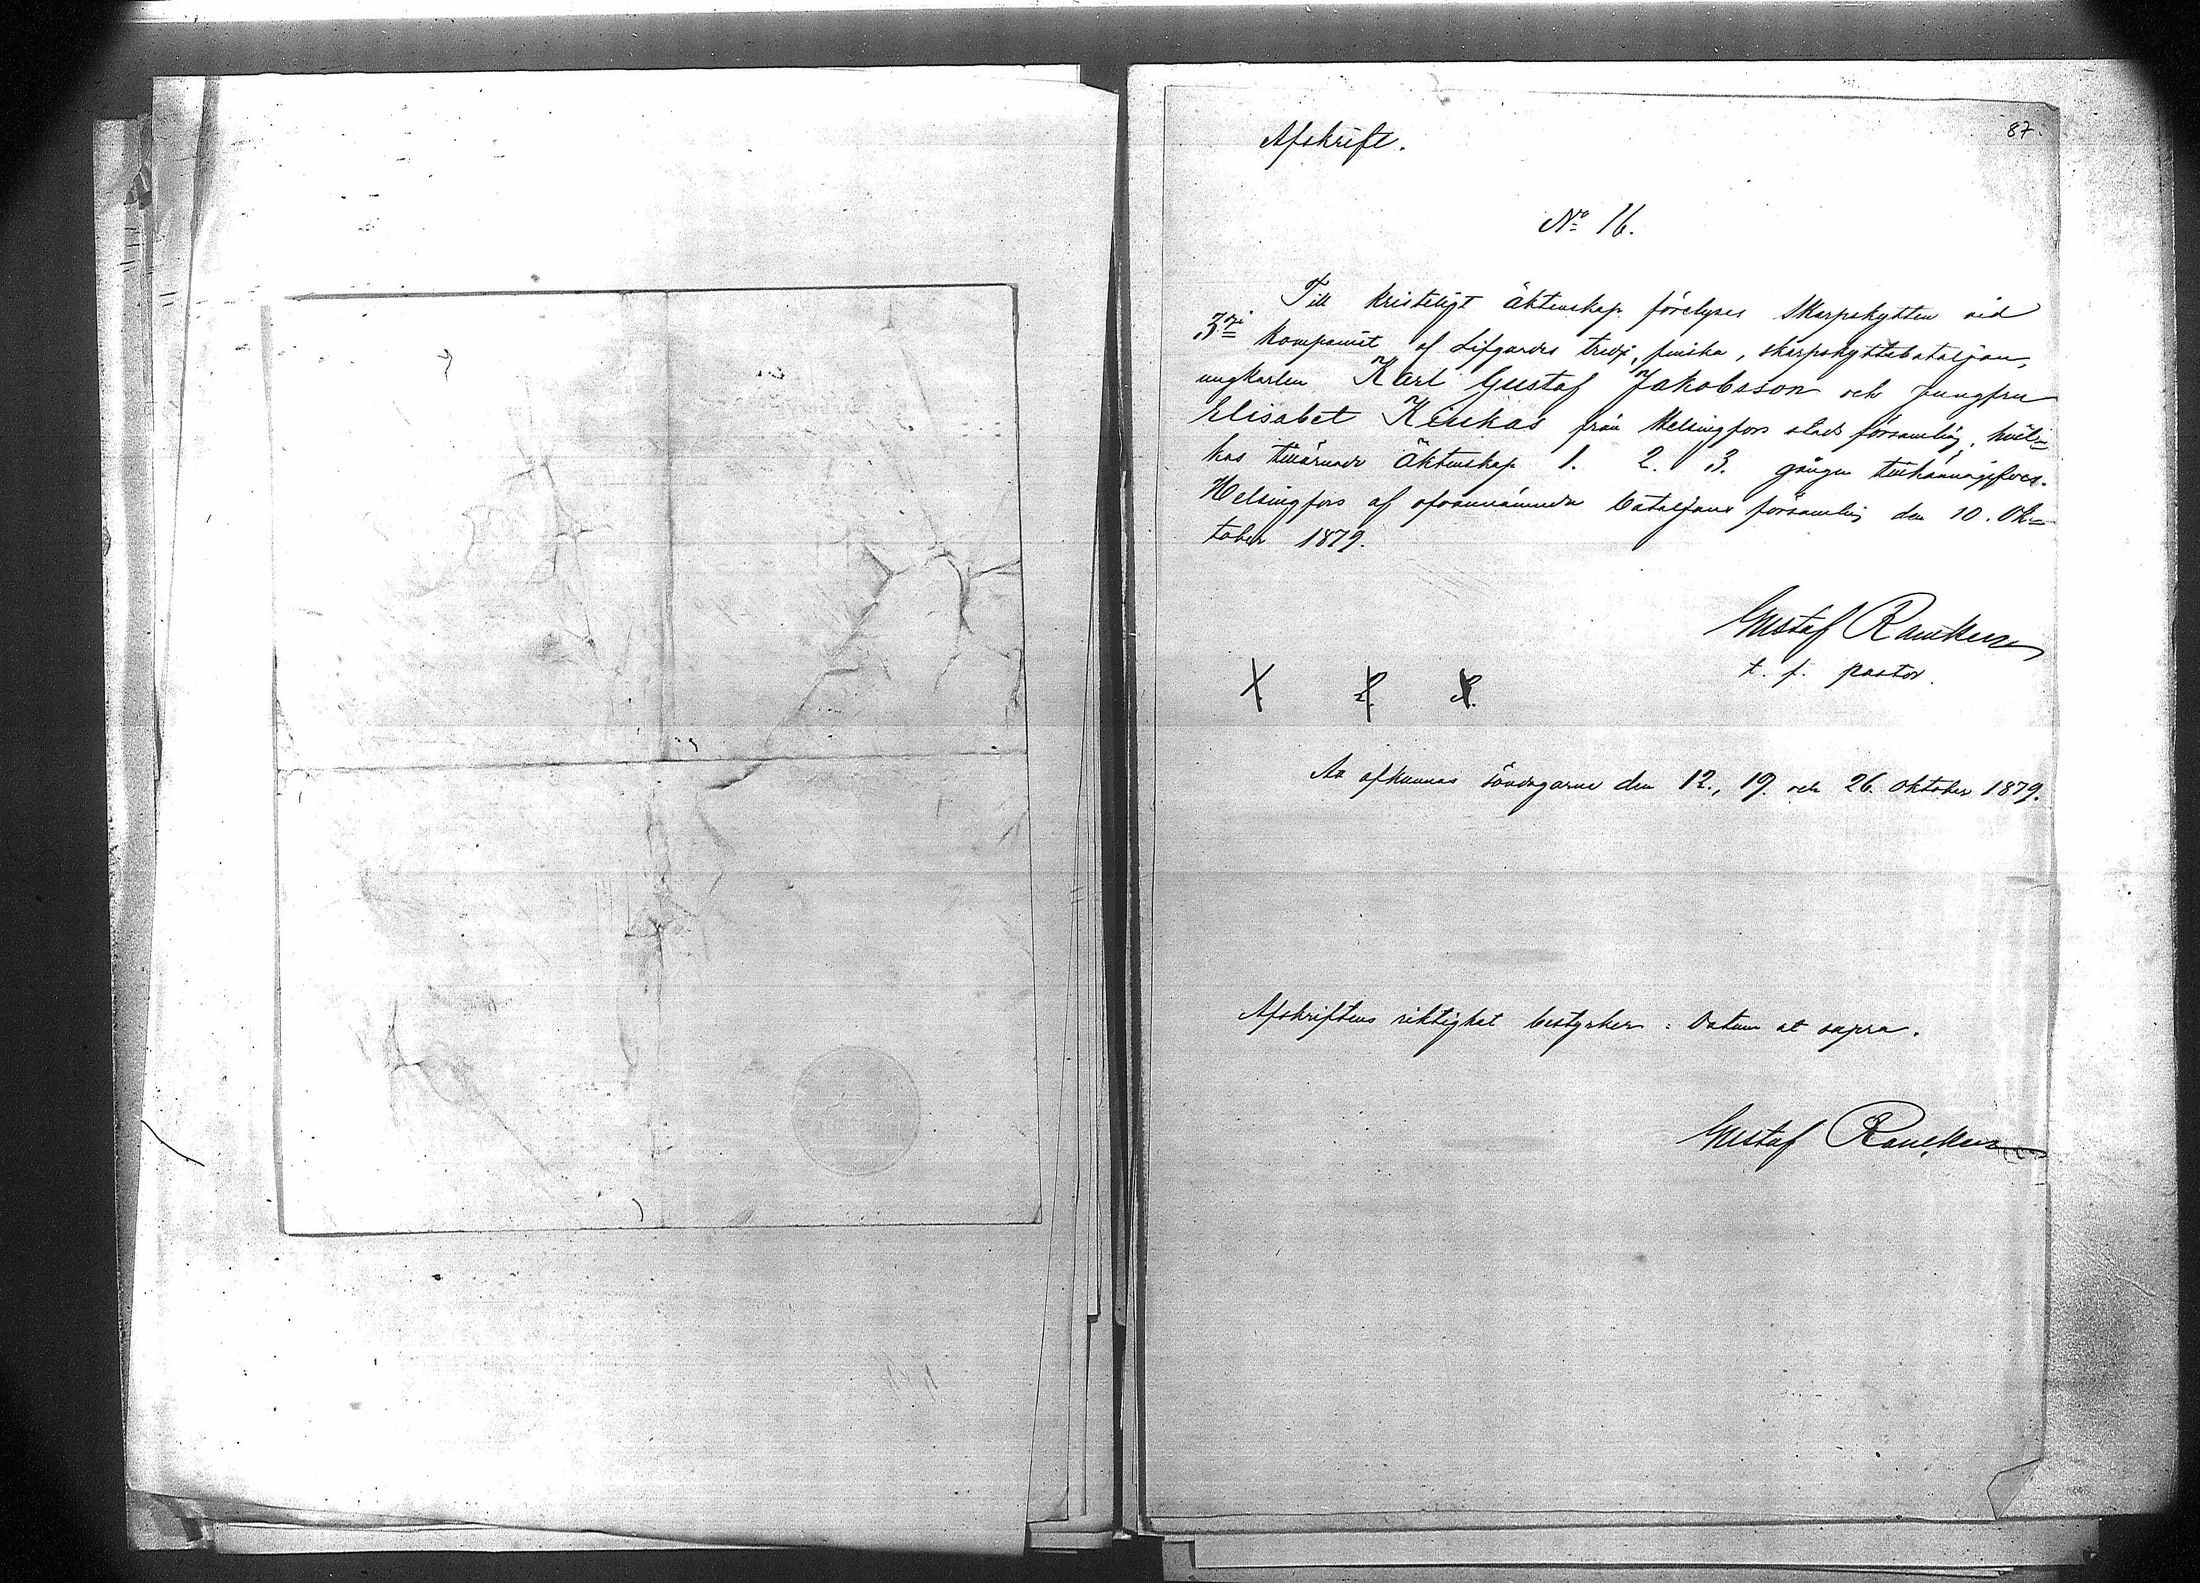 87.
Afskrift.
No 16.
Till kristeligt äktenskap förelyses Skarpskytten vid
3dje kompaniet af Lifgardes tredje, finska, skarpskyttebataljon,
ungkarlen Karl Gustaf Jakobsson och Jungfru
Elisabet Kiukas från Helsingfors stads församling, hvil=
kas tillärnade äktenskap 1. 2. 3. gången
Helsingfors af ofvannämnda bataljons församling den 10. Ok=
tober 1879.
Gustaf Rancken
t. f. pastor.
1. 2. 3.
At afkunnas söndagarne den 12., 19. och 26. Oktober 1879.
Afskriftens riktighet bestyrker: Datum ut supra.
Gustaf Rancken